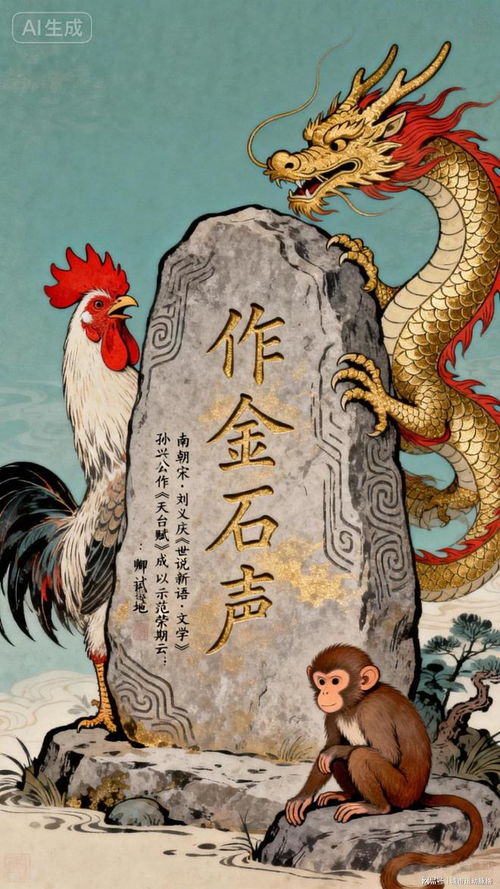 AI生成
作金石声
南朝宋·刘义庆《世说新语·文学》
孙兴公作《天台赋》成以示范荣期云:
:卿试掷地